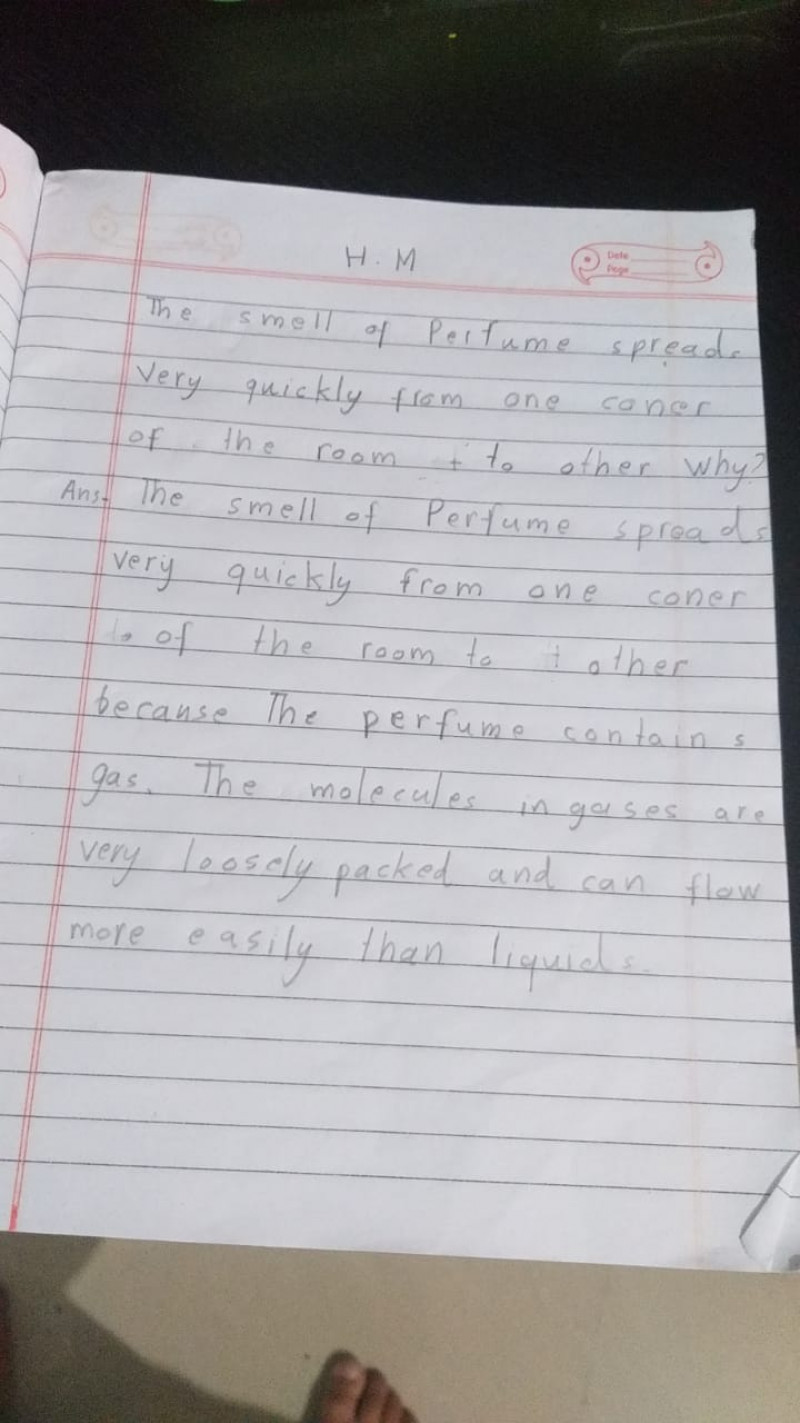 H.M
Date
Page
The smell of Perfume spreads
Very quickly from one coner
of the room to other why?
Ans. The smell of Perfume spreads
very quickly from one coner
of the room to other
because The perfume contains
gas. The molecules in gases are
very loosely packed and can flow
more easily than liquids.